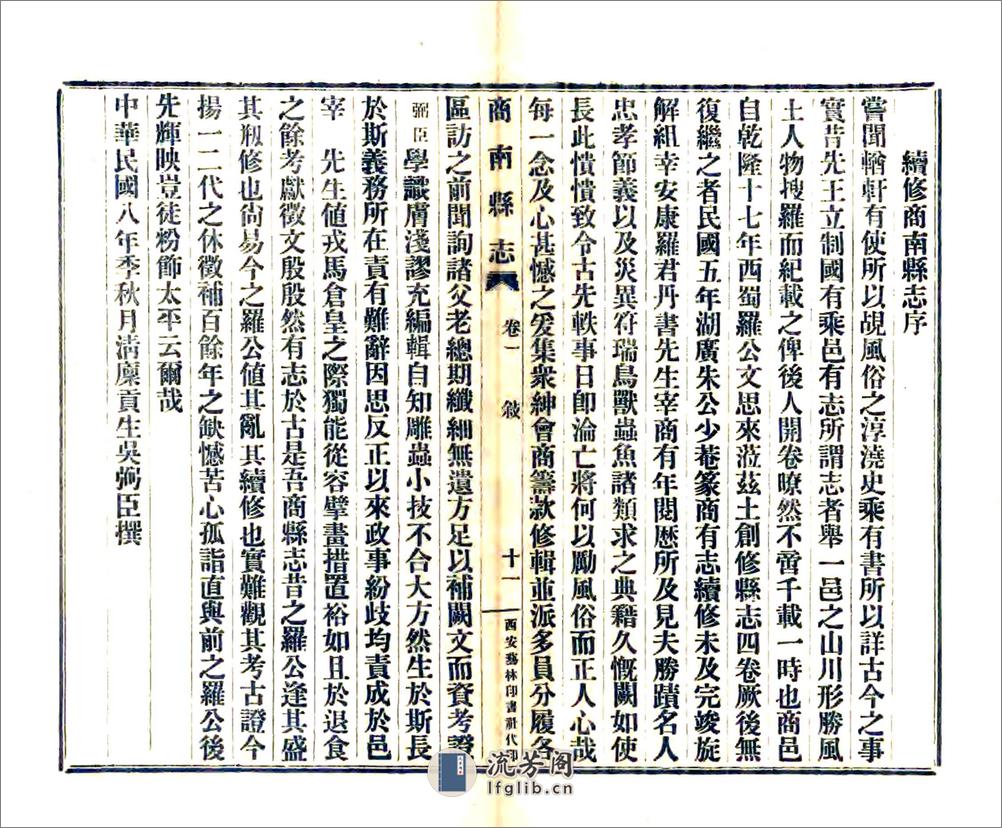 續修商南縣志序
嘗聞輶軒有使所以覘風俗之淳澆史乘有書所以詳古今之事
實昔先王立制國有乘邑有志所謂志者舉一邑之山川形勝風
土人物搜羅而紀載之俾後人開卷暸然不啻千載一時也商邑
自乾隆十七年西蜀羅公文思來蒞茲土創修縣志四卷厥後無
復繼之者民國五年湖廣朱公少菴篆商有志續修未及完竣旋
解組幸安康羅君丹書先生宰商有年閱歷所及見夫勝蹟名人
忠孝節義以及災異符瑞鳥獸蟲魚諸類求之典籍久慨闕如使
長此憒憒致令古先軼事日卽淪亡將何以勵風俗而正人心哉
每一念及心甚憾之爰集衆紳會商籌款修輯並派多員分履各
商南縣志 卷一 敘 十一 西安藝林印書社代印
區訪之前聞詢諸父老總期纖細無遺方足以補闕文而資考證
弼臣學識膚淺謬充編輯自知雕蟲小技不合大方然生於斯長
於斯義務所在責有難辭因思反正以來政事紛歧均責成於邑
宰 先生値戎馬倉皇之際獨能從容擘畫措置裕如且於退食
之餘考獻徵文殷殷然有志於古是吾商縣志昔之羅公逢其盛
其剏修也尙易今之羅公値其亂其續修也實難觀其考古證今
揚一二代之休徵補百餘年之缺憾苦心孤詣直與前之羅公後
先輝映豈徒粉飾太平云爾哉
中華民國八年季秋月淸廩貢生吳弼臣撰
流芳阁
lfglib.cn